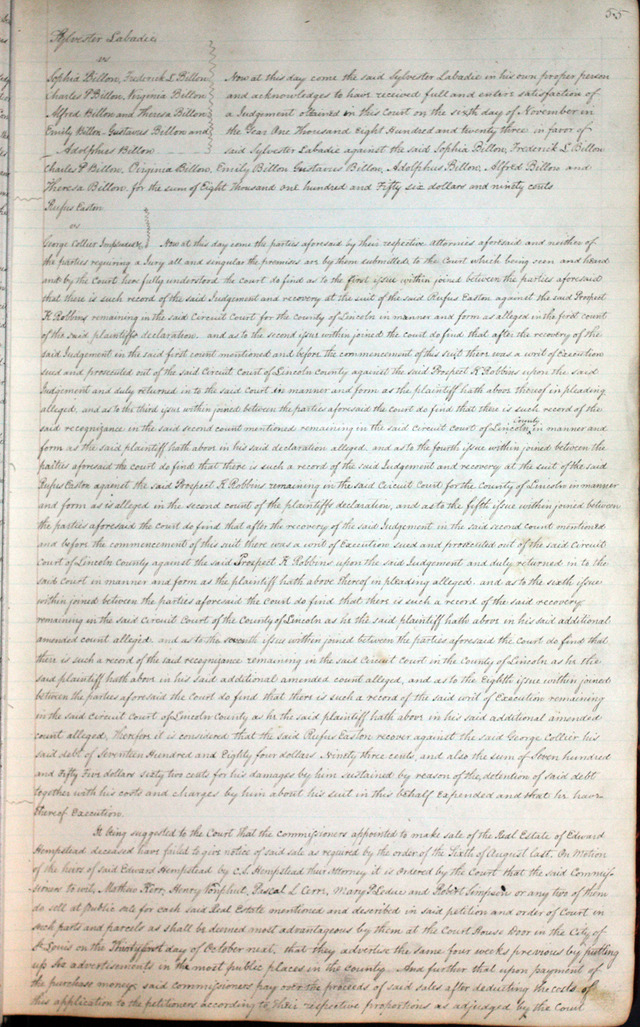 55
Sylvester Labadie
vs
Sophia Billon, Frederick L Billon
Charles P Billon, Virginia Billon
Alfred Billon and Theresa Billon
Emily Billon Gustavus Billon and
Adolphus Billon
Now at this day come the said Sylvester Labadie in his own proper person
and acknowledges to have received full and entire satisfaction of
a Judgement obtained in this Court on the sixth day of November in
the Year One Thousand Eight Hundred and twenty three in favor of
said Sylvester Labadie against the said Sophia Billon, Frederick L Billon
Charles P Billon, Virginia Billon, Emily Billon Gustavus Billon, Adolphus Billon, Alfred Billon and
Theresa Billon, for the sum of Eight Thousand one hundred and Fifty six dollars and ninety cents
Rufus Easton
vs
George Collier Now at this day come the parties aforesaid by their respective attornies aforesaid and neither of
the parties requiring a Jury all and singular the premises are by them submitted to the Court which being seen and heard
and by the Court here fully understood the Court do find as to the first issue within joined between the parties aforesaid
that there is such record of the said Judgement and recovery at the suit of the said Rufus Easton against the said Prospect
K Robbins remaining in the said Circuit Court for the county of Lincoln in manner and form as alleged in the first count
of the said plaintiffs declaration. and as to the second issue within joined the court do find that after the recovery of the
said Judgement in the said first count mentioned and before the commencement of this suit there was a writ of Execution
sued and prosecuted out of the said Circuit Court of Lincoln county against the said Prospect K Robbins upon the said
Judgement and duly returned in to the said Court in manner and form as the plaintiff hath above thereof in pleading
alleged, and as to the third issue within joined between the parties aforesaid the court do find that there is such record of the
said recognizance in the said second count mentioned remaining in the said circuit court of Lincoln County in manner and
form as the said plaintiff hath above in his said declaration alleged, and as to the fourth issue within joined between the
parties aforesaid the court do find that there is such a record of the said Judgement and recovery at the suit of the said
Rufus Easton against the said Prospect K Robbins remaining in the said Circuit Court for the County of Lincoln in manner
and form as is alleged in the second count of the plaintiffs declaration, and as to the fifth issue within joined between
the parties aforesaid the court do find that after the recovery of the said Judgement in the said second count mentioned
and before the commencement of this suit there was a writ of Execution sued and prosecuted out of the said Circuit
Court of Lincoln County against the said Prospect K Robbins upon the said Judgement and duly returned in to the
said court in manner and form as the plaintiff hath above thereof in pleading alleged. and as to the sixth issue
within joined between the parties aforesaid the Court do find that there is such a record of the said recovery
remaining in the said Circuit Court of the County of Lincoln as he the said plaintiff hath above in his said additional
amended count alleged. and as to the seventh issue within joined between the parties aforesaid the Court do find that
there is such a record of the said recognizance remaining in the said Circuit court in the County of Lincoln as he the
said plaintiff hath above in his said additional amended count alleged, and as to the Eighth issue within joined
between the parties aforesaid the Court do find that there is such a record of the said writ of Execution remaining
in the said Circuit court of Lincoln County as he the said plaintiff hath above in his said additional amended
count alleged, Therefore it is considered that the said Rufus Easton recover against the said George Collier his
said debt of Seventeen Hundred and Eighty four dollars Ninety three cents, and also the sum of Seven hundred
and Fifty Five dollars sixty two cents for his damages by him sustained by reason of the detention of said debt
together with his costs and charges by him about his suit in this behalf Expended and that he have
thereof Execution.
It being suggested to the Court that the commissioners appointed to make sale of the Real Estate of Edward
Hempstead deceased have failed to give notice of said sale as required by the order of the Sixth of August last. On Motion
of the heirs of said Edward Hempstead by C.S. Hempstead their Attorney it is ordered by the Court that the said Commis-
sioners to wit, Mathew Kerr, Henry Pascal L Cerre, Mary P Leduc and Robert Simpson or any two of them
do sell at public sale for cash said Real Estate mentioned and described in said petition and order of Court in
such parts and parcels as shall be deemed most advantageous by them at the Court House Door in the City of
St Louis on the Thirtyfirst day of October next, that they advertise the same four weeks previous by putting
up advertisements in the most public places in the county. And further that upon payment of
the purchase money said commissioners pay over the proceeds of said sales after deducting the costs of
this application to the petitioners according to their respective proportions as adjudged by the Court